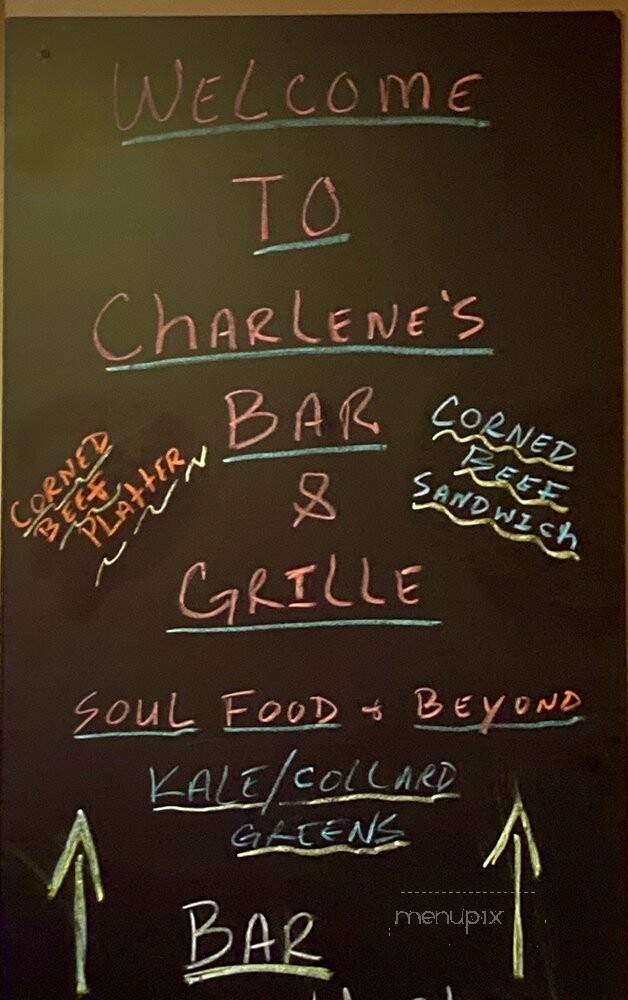 WELCOME
TO
CHARLENE'S
BAR
&
GRILLE
CORNED
BEEF
PLATTER
CORNED
BEEF
SANDWICH
SOUL FOOD + BEYOND
KALE/COLLARD
GREENS
BAR
menupix